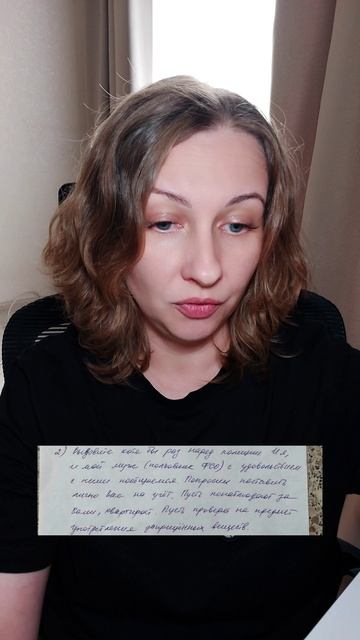 2) Вызовите хотя бы раз наряд полиции и я,
и мой муж (полковник ФСО) с удовольствием
с ними пообщаемся. Попросим поставить
лично вас на учёт. Пусть понаблюдают за
вами, квартирой. Пусть проверят на предмет
употребления запрещённых веществ.